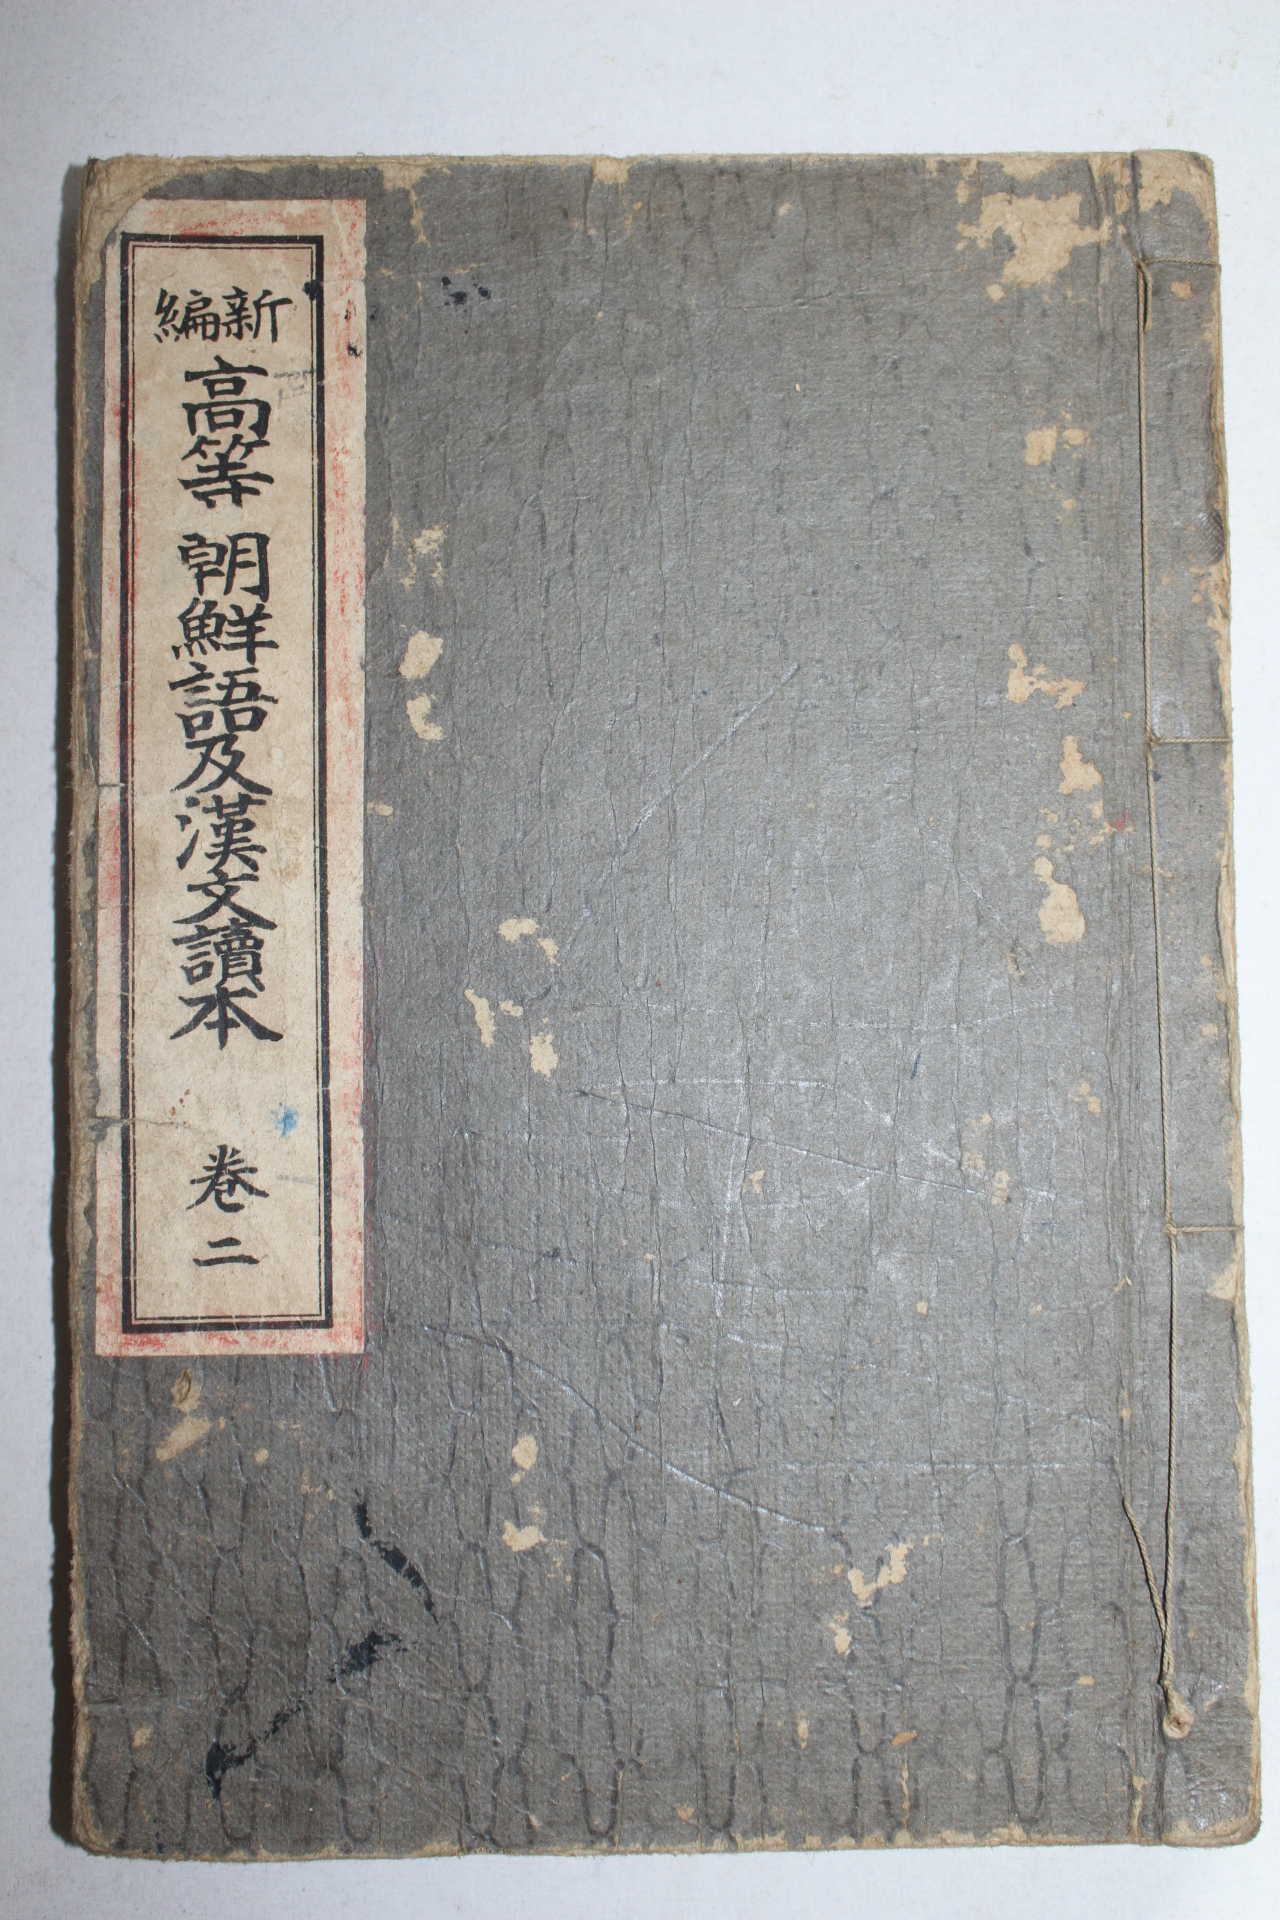 新編
高等朝鮮語及漢文讀本
卷二